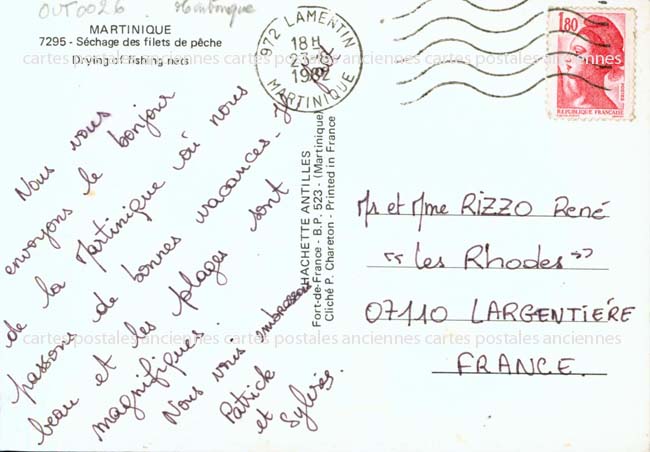 OUT0026 Martinique
MARTINIQUE
7295 - Séchage des filets de pêche
Drying of fishing nets
cartes postales anciennes cartes postales anciennes cartes postales anciennes
972 LAMENTIN
18H
1982
MARTINIQUE
1,80
RÉPUBLIQUE FRANÇAISE
Nous vous
envoyons le bonjour
de la Martinique où nous
passons de bonnes vacances. Il fait
beau et les plages sont
magnifiques.
Nous vous embrassons
Patrick
et Sylvie.
HACHETTE ANTILLES
Fort-de-France - B.P. 523 - (Martinique)
Cliché P. Chareton - Printed in France
Mr et Mme RIZZO René
"Les Rhodes"
07110 LARGENTIÉRE
FRANCE.
cartes postales anciennes cartes postales anciennes cartes postales anciennes